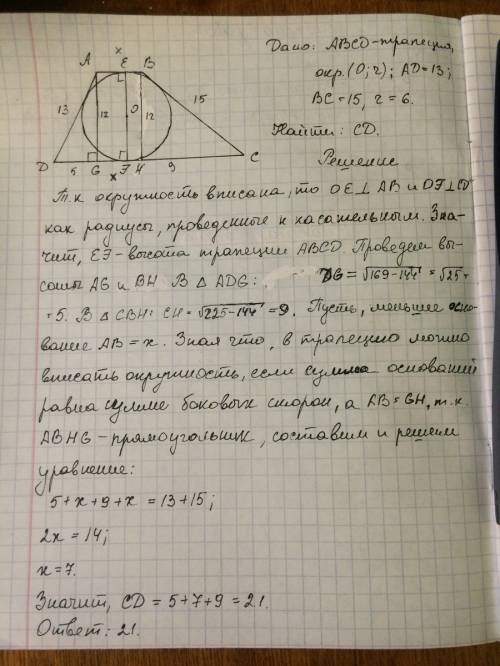 Дано: ABCD-трапеция,
окр.(O; r); AD=13;
BC=15, r=6.
Найти: CD.
Решение
A x E B
13 12 O 12 15
D 5 G x F H 9 C
Т.к окружность вписана, то OE⊥AB и OF⊥CD
как радиусы, проведенные к касательным. Зна-
чит, EF-высота трапеции ABCD. Проведем вы-
соты AG и BH. В △ADG: DG=√169-144=√25=
=5. В △CBH: CH=√225-144=9. Пусть, меньшее осно-
вание AB=x. Зная что, в трапецию можно
вписать окружность, если сумма оснований
равна сумме боковых сторон, а AB=GH, т.к.
ABHG-прямоугольник, составим и решим
уравнение:
5+x+9+x=13+15;
2x=14;
x=7.
Значит, CD=5+7+9=21.
Ответ: 21.